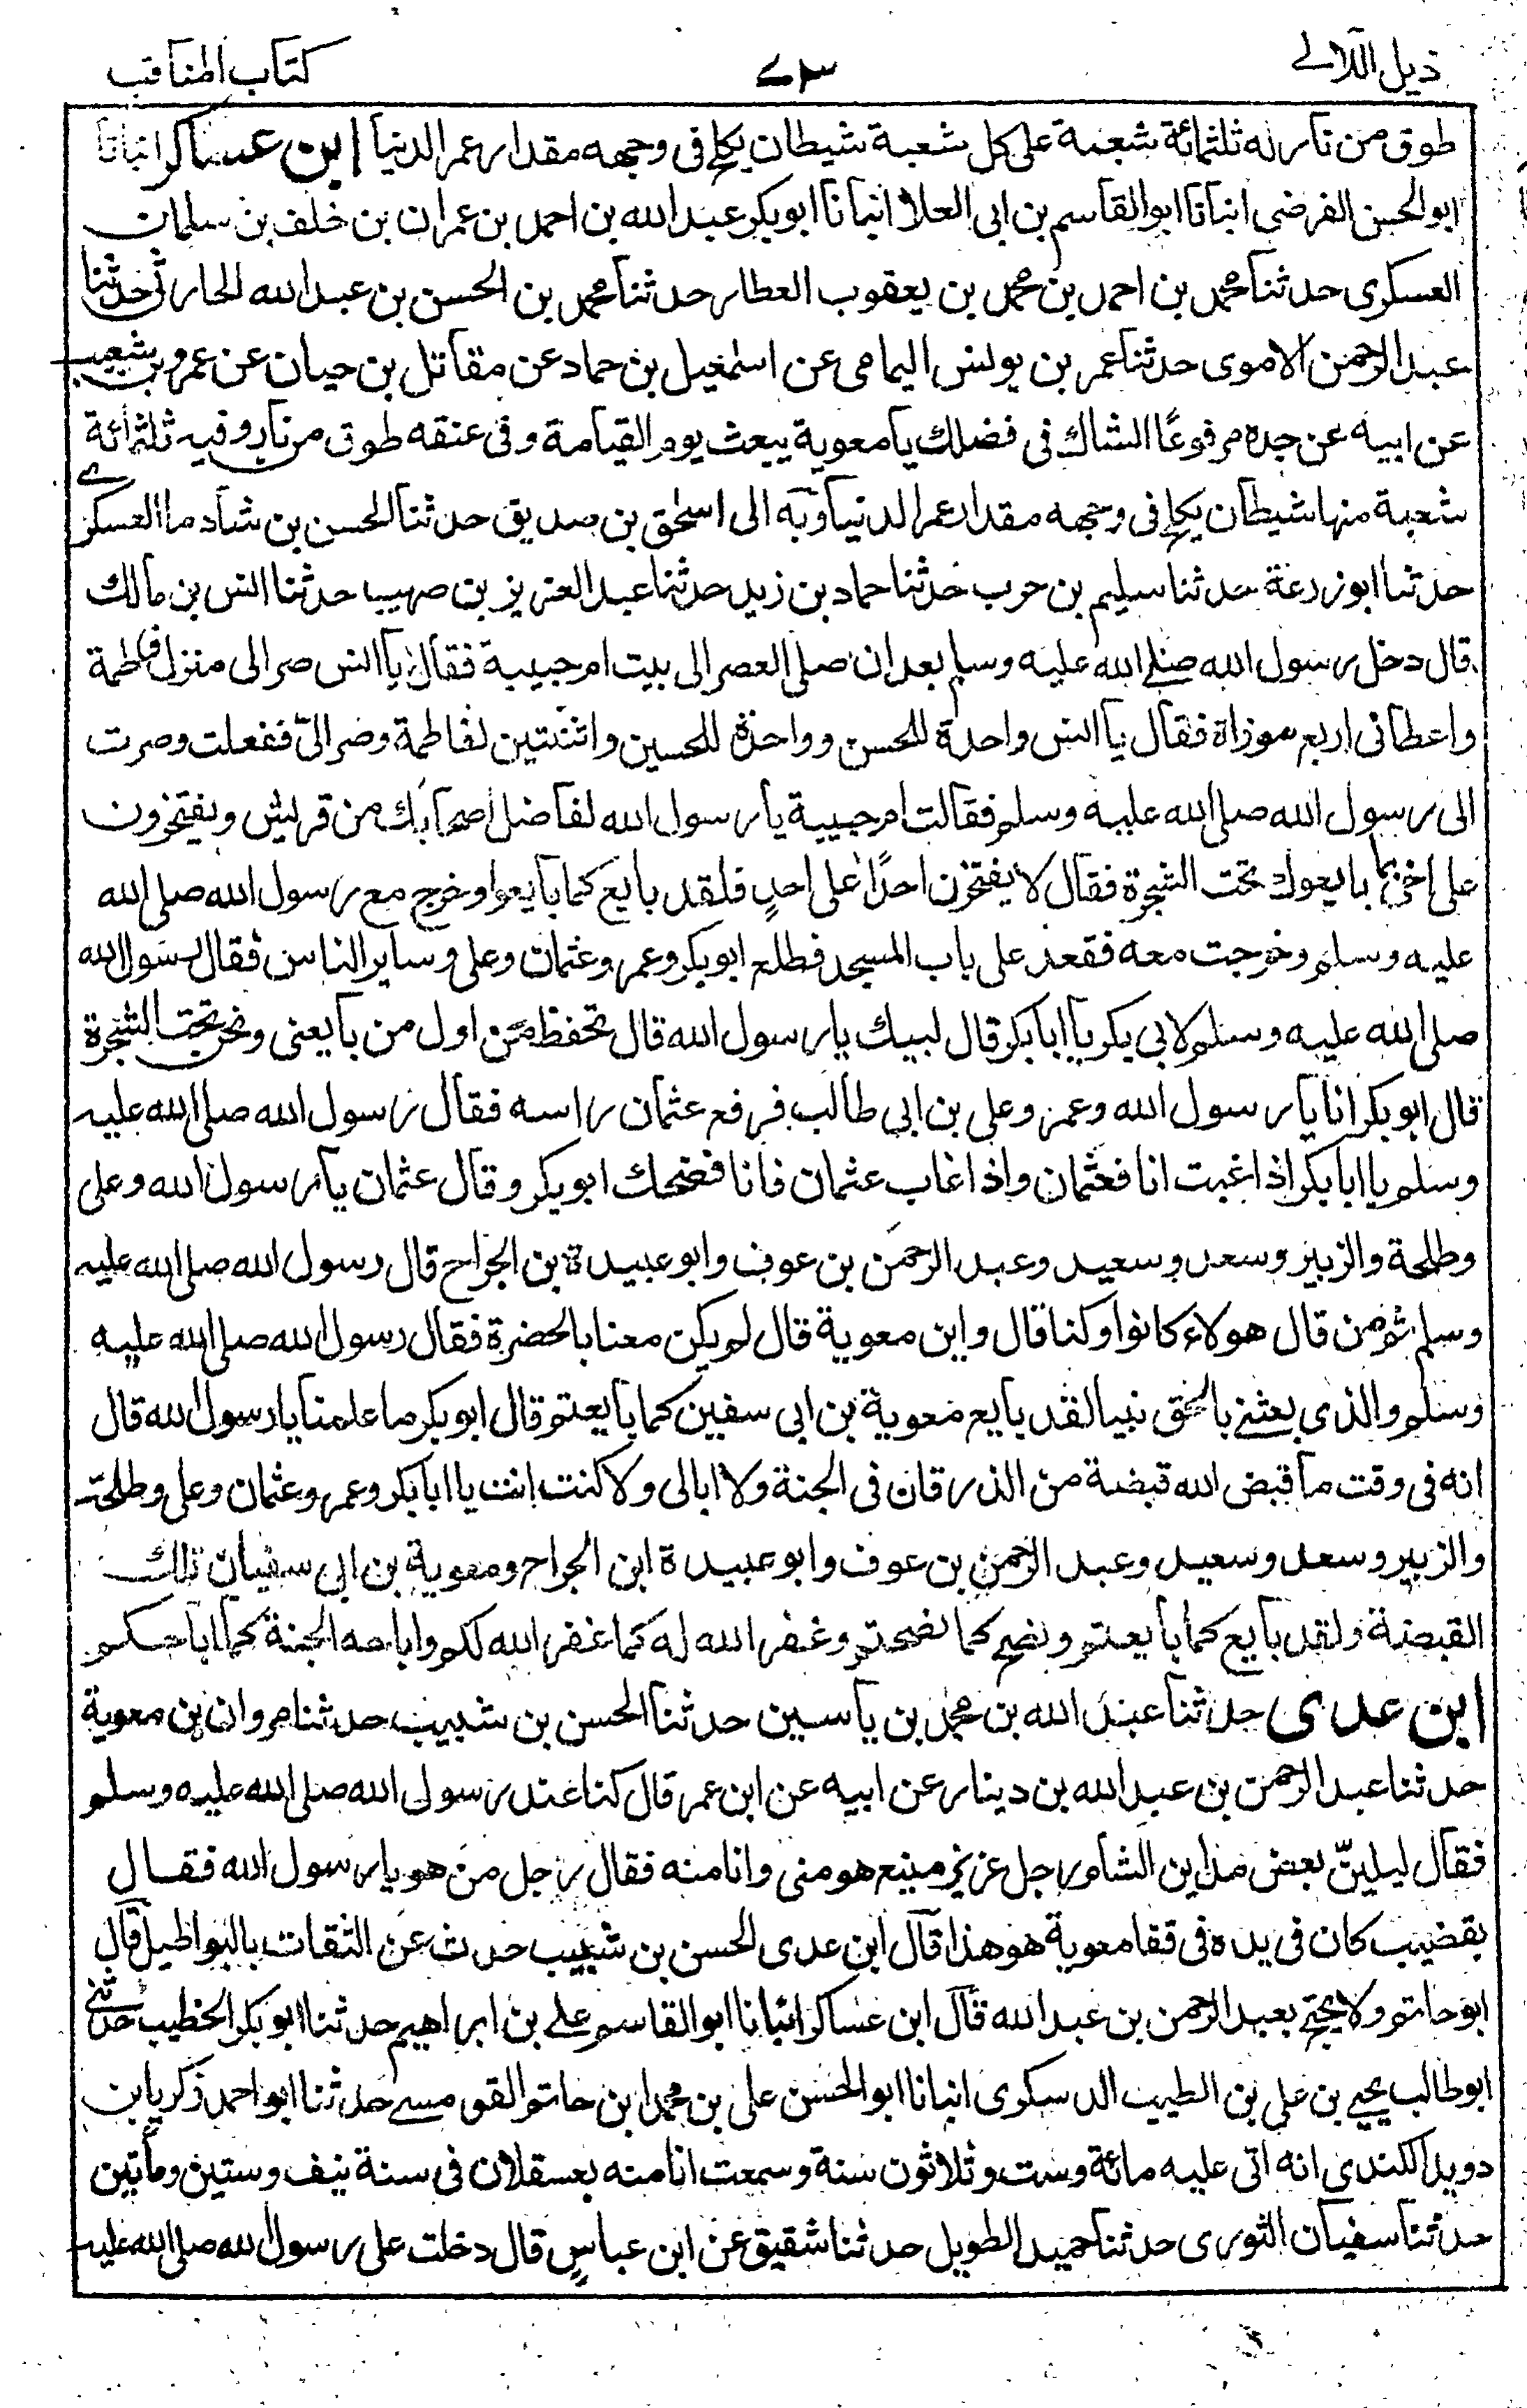 ذيل اللآلے
كتاب المناقب
طوق من نار له ثلثمائة شعبة على كل شعبة شيطان يكلح فى وجهه مقدار عمر الدنيا ابن عساكر انبانا
ابو الحسن الفرضى انبانا ابو القاسم بن ابى العلا انبانا ابو بكر عبد الله بن احمد بن عمران بن خلف بن سلمان
العسكرى حدثنا محمد بن احمد بن محمد بن يعقوب العطار حدثنا محمد بن الحسن بن عبد الله الحارثى حدثنا
عبد الرحمن الاموى حدثنا عمر بن يونس اليمامى عن اسمعيل بن حماد عن مقاتل بن حيان عن عمرو بن شعيب
عن ابيه عن جده مرفوعًا الشاك فى فضلك يا معوية يبعث يوم القيامة وفى عنقه طوق من نار وفيه ثلثمائة
شعبة منها شيطان يكلح فى وجهه مقدار عمر الدنيا وبه الى اسحق بن صديق حدثنا الحسن بن شاد ما العسكرے
حدثنا ابو زرعة حدثنا سليم بن حرب حدثنا حماد بن زيد حدثنا عبد العزيز بن صهيب حدثنا انس بن مالك
قال دخل رسول الله صلے الله عليه وسلم بعد ان صلى العصر الى بيت ام حبيبة فقال يا انس صر الى منزل فاطمة
واعطانى اربع موزاة فقال يا انس واحدة للحسن وواحدة للحسين واثنتين لفاطمة وصر الىّ ففعلت وصرت
الى رسول الله صلى الله عليه وسلم فقالت ام حبيبة يا رسول الله لفاضل اصحابك من قريش ويفتخرون
على اخى بما بايعوك تحت الشجرة فقال لا يفتخرن احدًا على احدٍ فلقد بايع كما بايعوا وخرج مع رسول الله صلى الله
عليه وسلم وخرجت معه فقعد على باب المسجد فطلع ابو بكر وعمر وعثمان وعلى وساير الناس فقال رسول الله
صلى الله عليه وسلم لابى بكر يا ابا بكر قال لبيك يا رسول الله قال تحفظ من اول من بايعنى ونحن تحت الشجرة
قال ابو بكر انا يا رسول الله وعمر وعلى بن ابى طالب فرفع عثمان راسه فقال رسول الله صلى الله عليه
وسلم يا ابا بكر اذا غبت انا فعثمان واذا غاب عثمان فانا فضحك ابو بكر وقال عثمان يا رسول الله وعلى
وطلحة والزبير وسعد وسعيد وعبد الرحمن بن عوف وابو عبيدة بن الجراح قال رسول الله صلى الله عليه
وسلم ثم من قال هولاء كانوا وكنا قال واين معوية قال لم يكن معنا بالحضرة فقال رسول الله صلى الله عليه
وسلم والذى بعثنے بالحق نبيا لقد بايع معوية بن ابى سفين كما بايعتم قال ابو بكر ما علمنا يا رسول الله قال
انه فى وقت ما قبض الله قبضة من الذر قان فى الجنة ولا ابالى ولا كنت انت يا ابا بكر وعمر وعثمان وعلى وطلحة
والزبير وسعد وسعيد وعبد الرحمن بن عوف وابو عبيدة ابن الجراح ومعوية بن ابى سفيان تلك
القبضة ولقد بايع كما بايعتم ونصح كما نصحتم وغفر الله له كما غفر الله لكم واباحه الجنة كما اباحكم
ابن عدى حدثنا عبد الله بن محمد بن ياسين حدثنا الحسن بن شبيب حدثنا مروان بن معوية
حدثنا عبد الرحمن بن عبد الله بن دينار عن ابيه عن ابن عمر قال كنا عند رسول الله صلى الله عليه وسلم
فقال ليلينّ بعض مداين الشام رجل عزيز منيع هو منى وانا منه فقال رجل من هو يا رسول الله فقال
بقضيب كان فى يده فى قفا معوية هو هذا قال ابن عدى الحسن بن شبيب حدث عن الثقات بالبواطيل قال
ابو حاتم ولا يحتج بعبد الرحمن بن عبد الله قال ابن عساكر انبانا ابو القاسم علے بن ابراهيم حدثنا ابو بكر الخطيب حدثنے
ابو طالب يحيے بن على بن الطيب الدسكرى انبانا ابو الحسن على بن محمد ابن حاتم القومسے حدثنا ابو احمد زكريا بن
دويد الكندى انه اتى عليه مائة وست وثلاثون سنة وسمعت انا منه بعسقلان فى سنة نيف وستين ومأتين
حدثنا سفيان الثورى حدثنا حميد الطويل حدثنا شقيق عن ابن عباسٍ قال دخلت على رسول الله صلى الله عليه